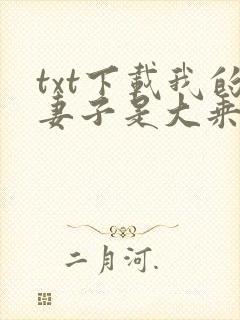 txt下载我的
妻子是大乘
二月河.